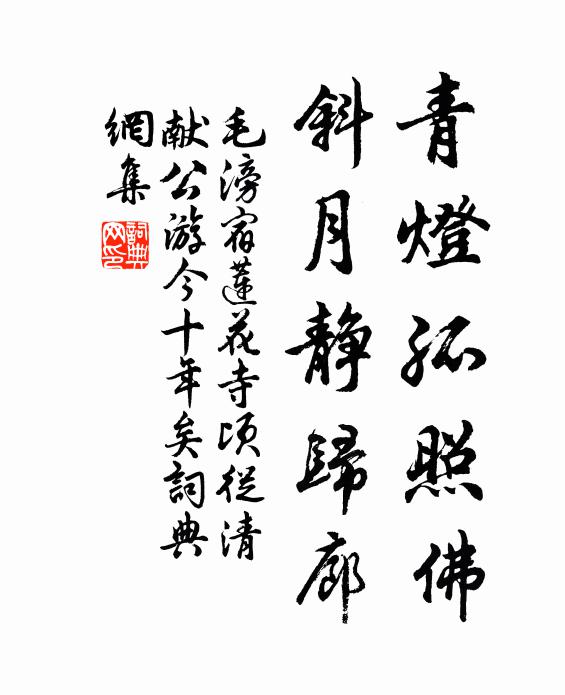 青燈孤照佛
斜月静歸廊
毛滂宿蓮花寺頃從清
献公游今十年矣詞典
網集
詞典
网印